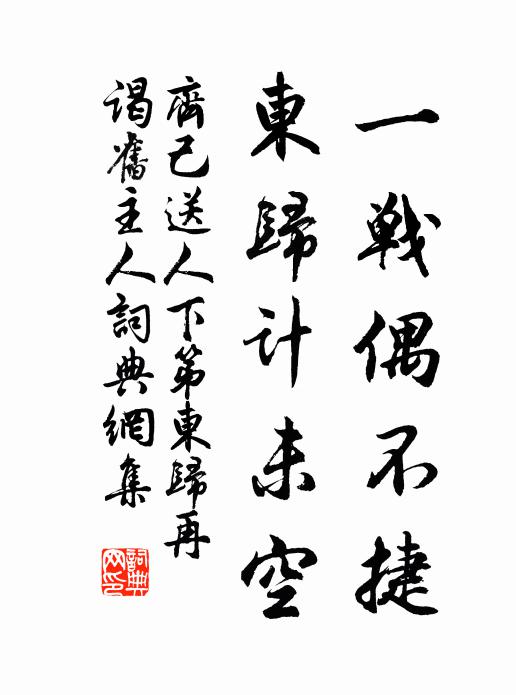 一戰偶不捷
東歸計未空
齊己送人下第東歸再
謁舊主人詞典網集
詞典網印